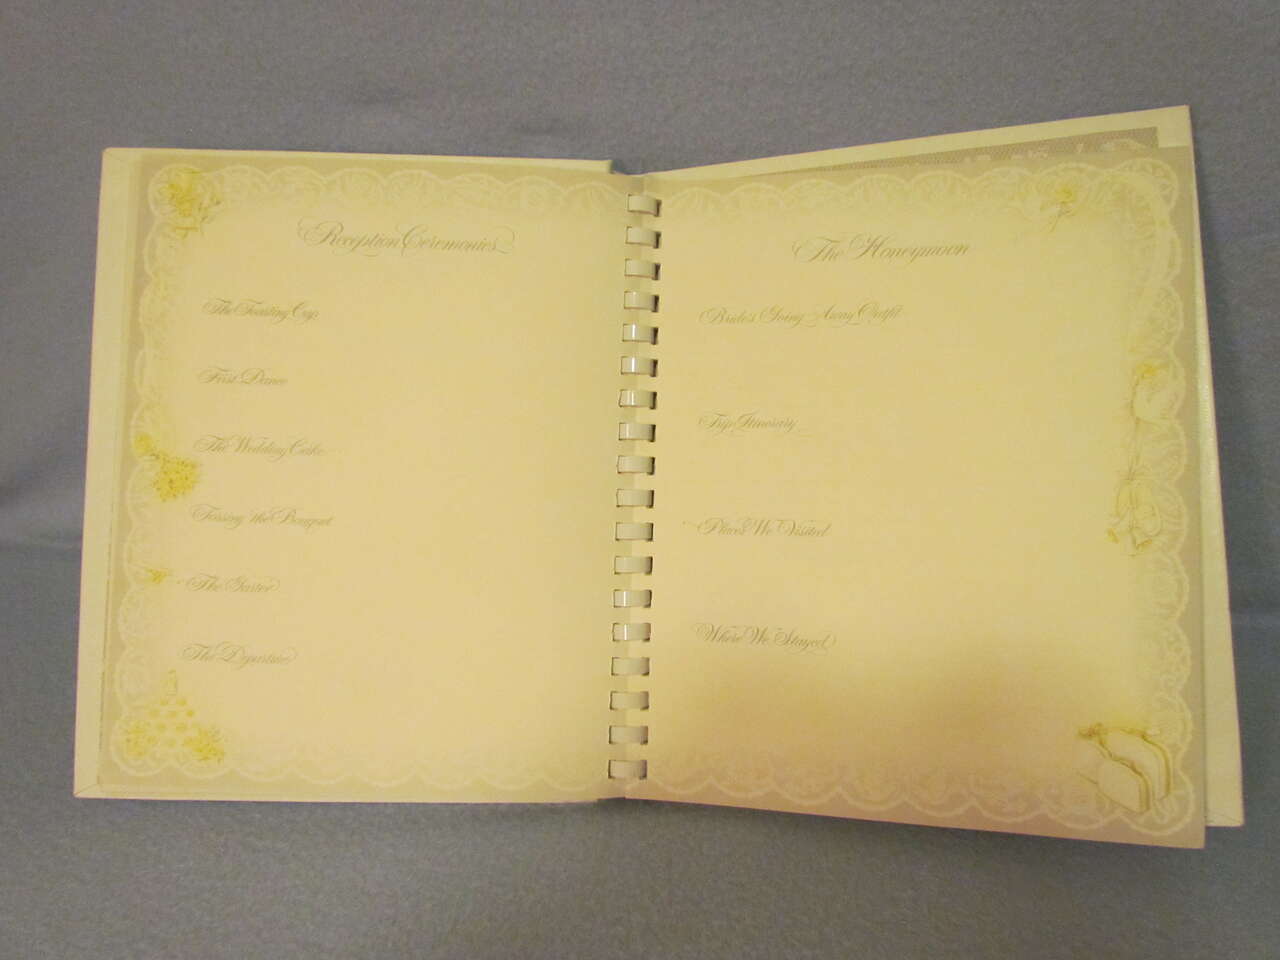 Reception Ceremonies
The Toasting Cup
First Dance
The Wedding Cake
Tossing the Bouquet
The Garter
The Departure
The Honeymoon
Bride's Going Away Outfit
Trip Itinerary
Places We Visited
Where We Stayed